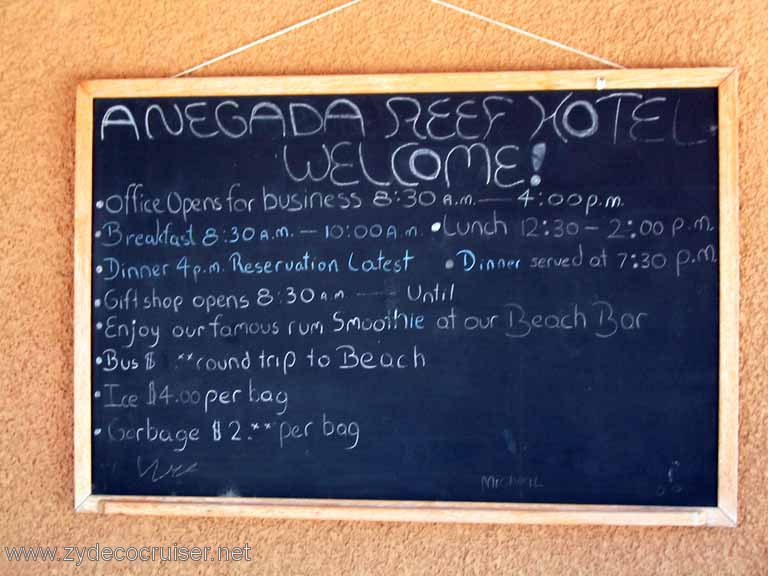 ANEGADA REEF HOTEL
WELCOME!
• Office Opens for business 8:30 A.M. — 4:00 p.m.
• Breakfast 8:30 A.M. — 10:00 A.M. • Lunch 12:30 – 2:00 P.M.
• Dinner 4 p.m. Reservation Latest • Dinner served at 7:30 P.M
• Gift shop opens 8:30 A.M — Until
• Enjoy our famous rum Smoothie at our Beach Bar
• Bus $ .** round trip to Beach
• Ice $4.00 per bag
• Garbage $2.** per bag
www.zydecocruiser.net